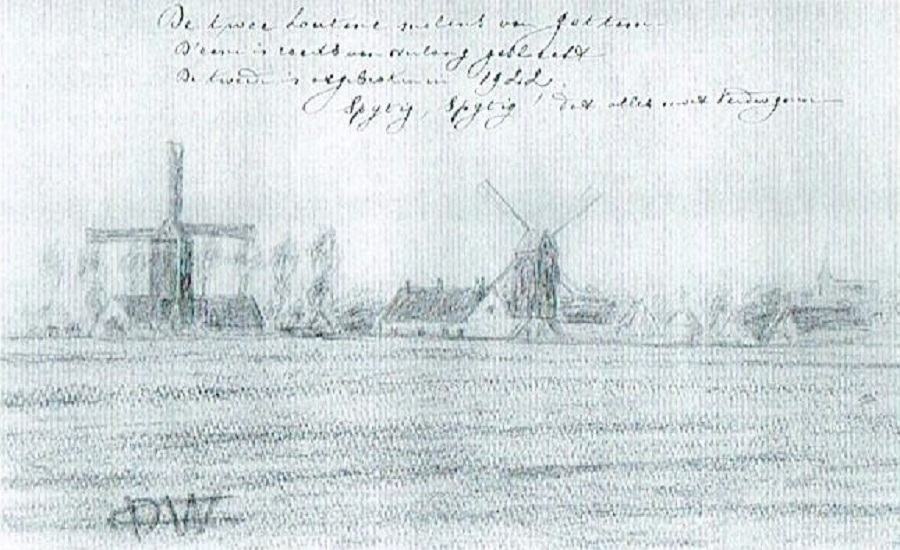 De twee houtene molens van Gottem
D'eene is reeds van overlang geslecht
De tweede is afgebroken in 1922.
Spytig, Spytig! dat alles moet verdwynen
CDW